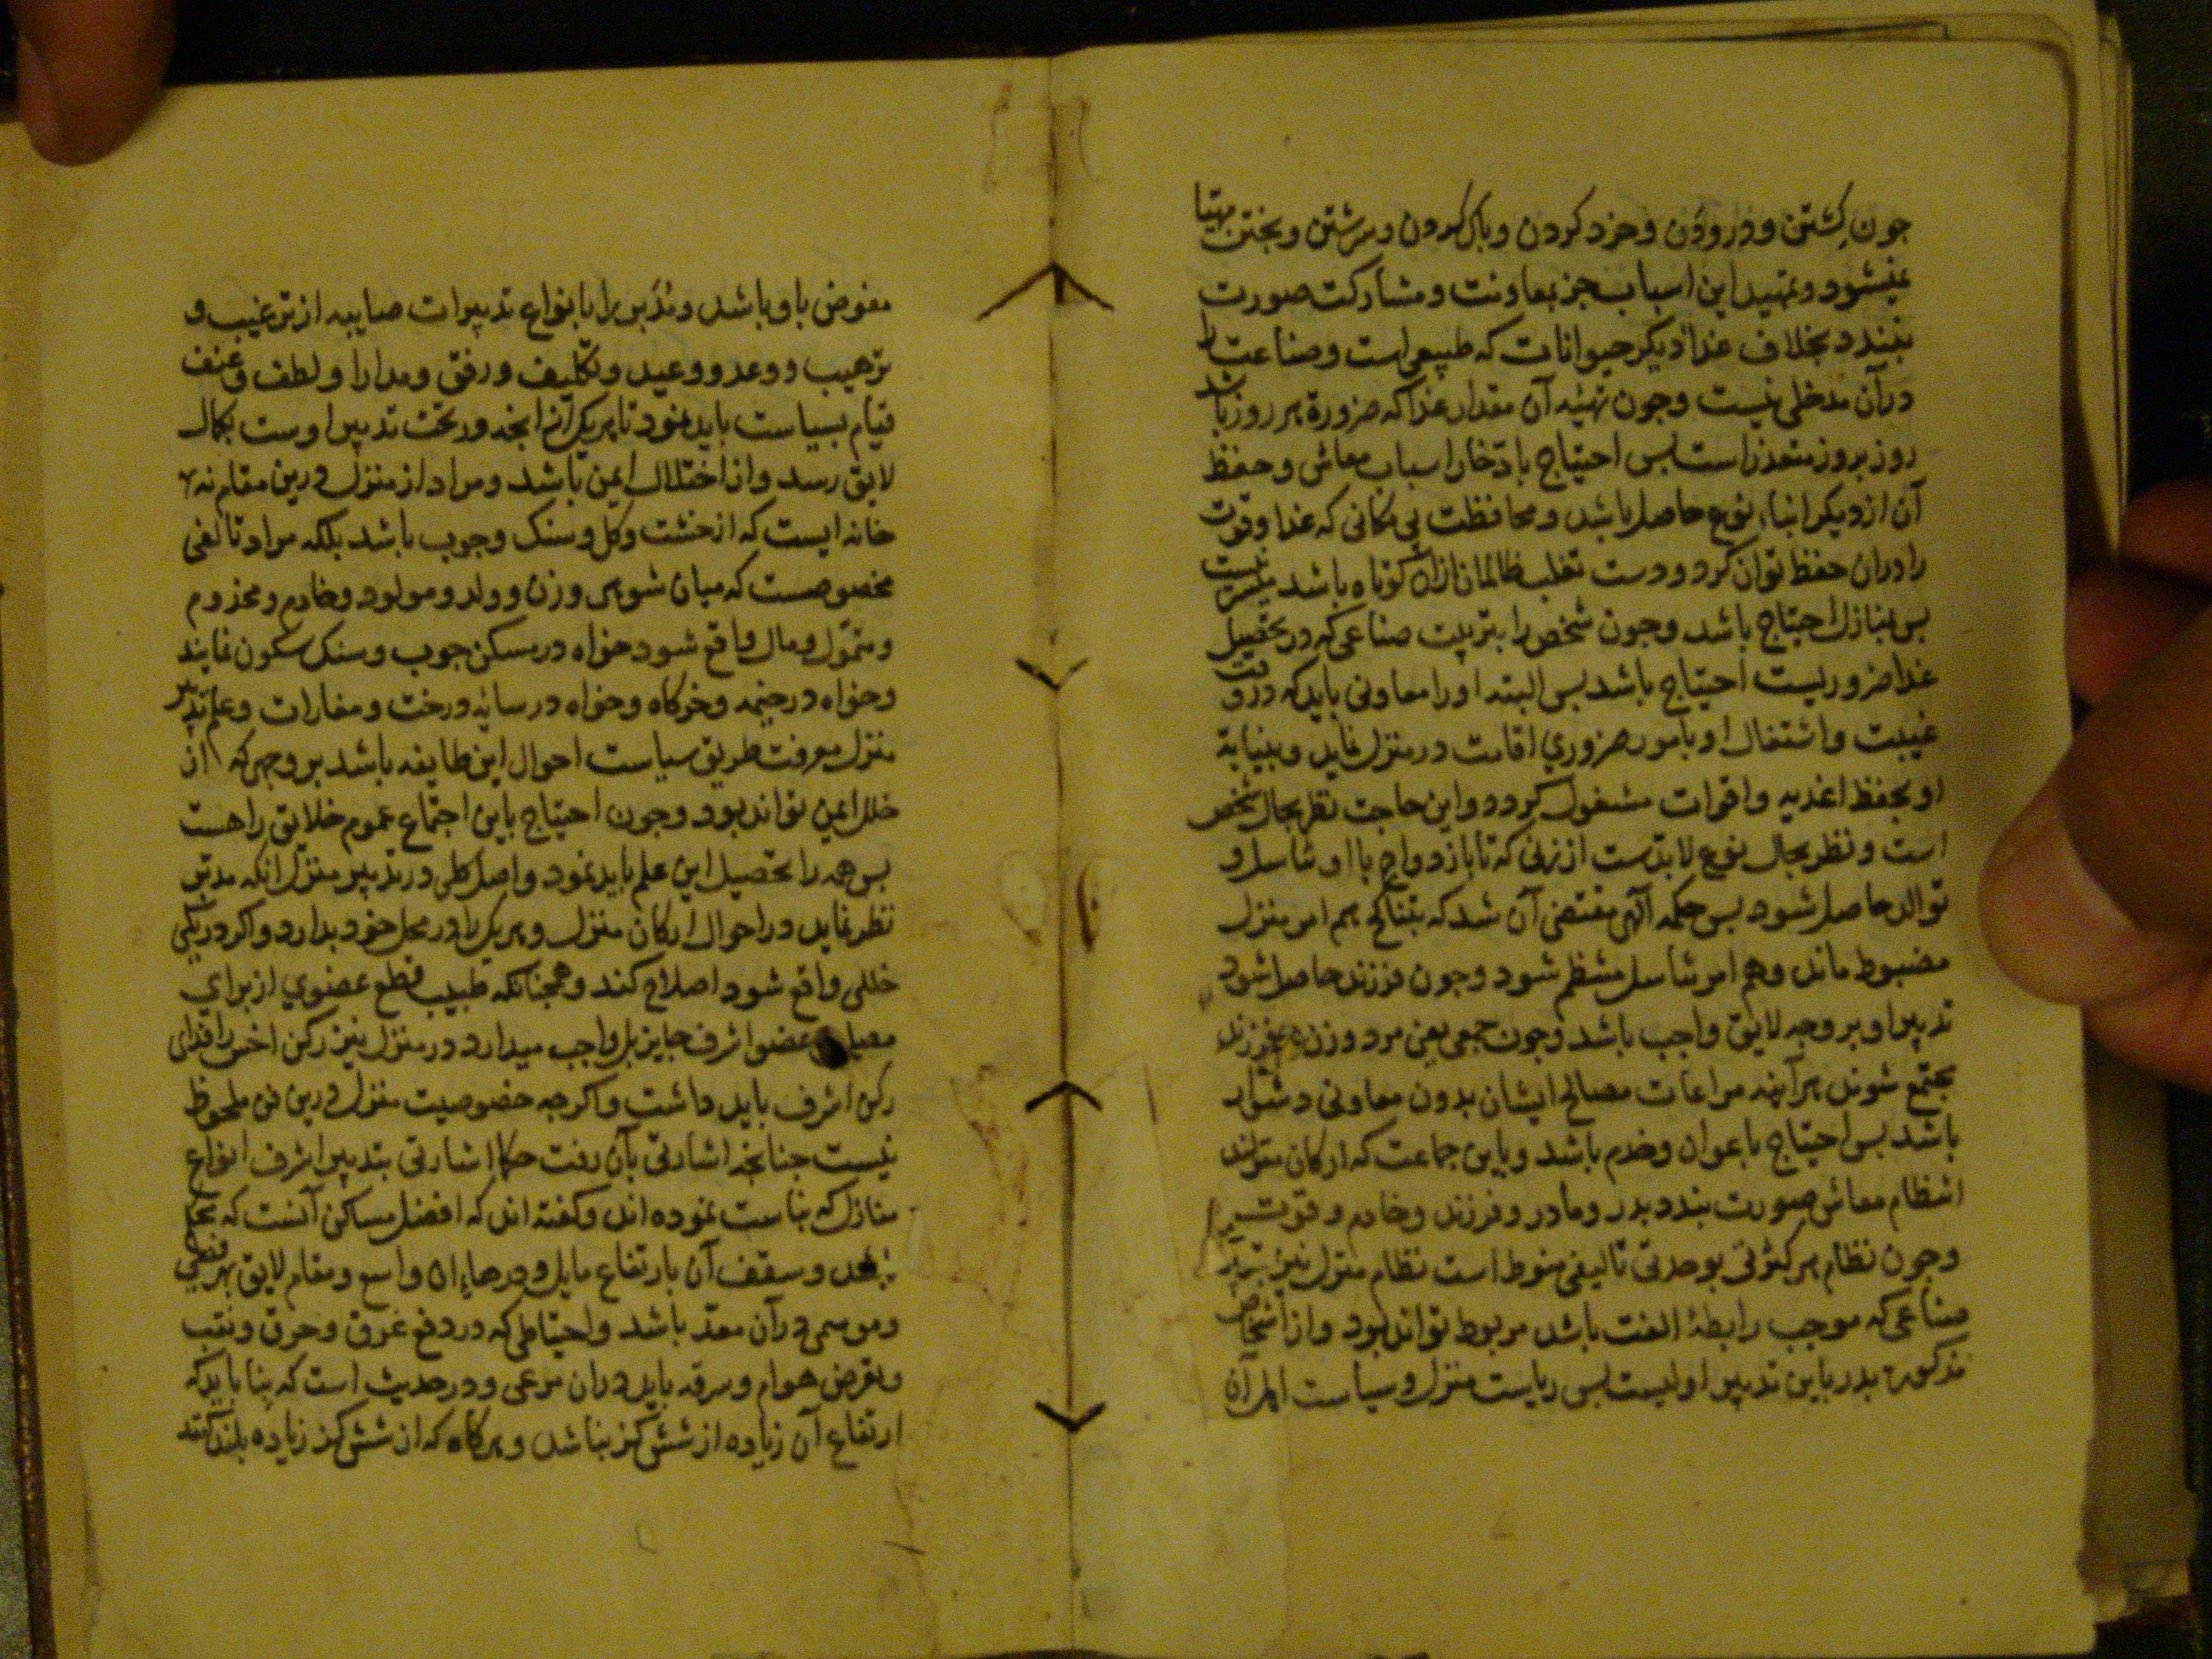 جون کشتن و درودن و خرد کردن و باک کردن و سرشتن و بختن مهیا
نمیشود و تمهید این اسباب جز بمعاونت و مشارکت صورت
نبندد بخلاف غذا دیکر حیوانات که طبیعی است و صناعت را
در آن مدخلی نیست و جون تهیئه آن مقدار غذا که ضرورة هر روز باشد
روز بروز متعذر است بس احتیاج بادخار اسباب معاش و حفظ
آن از دیکر ابناء نوع حاصل باشد و محافظت بی مکانی که غذا و قوت
را دران حفظ توان کرد و دست تغلب ظالمان ازان کوتاه باشد میسر نیست
بس بمنازل احتیاج باشد و جون شخص را بترتیب صناعی که در تحصیل
غذا ضروریست احتیاج باشد بس البته او را معاونی باید که در وقت
غیبت و اشتغال او بامور ضروری اقامت در منزل نماید و بنیابة
او بحفظ اغذیه و اقوات مشغول کردد و این حاجت نظر بحال شخص
است و نظر بحال نوع لابدست از زنی که تا بازدواج با او تناسل و
توالد حاصل شود بس حکمه آلهی مقتضی آن شد که بتناکح هم امر منزل
مضبوط ماند و هم امر تناسل منتظم شود و جون فرزند حاصل شود
تدبیر او بر وجه لایق واجب باشد و جون جمعی یعنی مرد و زن و فرزند
مجتمع شوند هر آینه مراعات مصالح ایشان بدون معاونی دشوار
باشد بس احتیاج باعوان و خدم باشد و باین جماعت که ارکان منزلند
انتظام معاش صورت بندد بدر و مادر و فرزند و خادم و قوت
و جون نظام هر کثرتی بوحدتی تالیفی منوط است نظام منزل نیز بتدبیر
صناعی که موجب رابطۀ الفت باشد مربوط تواند بود و از اشخاص
مذکوره بدر باین تدبیر اولیست بس ریاست منزل و سیاست اهل آن
مفوض باو باشد و تدبیر را بانواع تدبیرات صایبه از ترغیب و
ترهیب و وعد و وعید و تکلیف و رفق و مدارا و لطف و عنف
قیام بسیاست باید نمود تا هر یک از انجه در تحت تدبیر اوست بکمال
لایق رسد و از اختلال ایمن باشد و مراد از منزل درین مقام نه
خانه ایست که از خشت و کل و سنک و جوب باشد بلکه مراد تالفی
مخصوصست که میان شوهر و زن و ولد و مولود و خادم و مخدوم
و متمول و مال واقع شود خواه در مسکن جوب و سنک سکون نمایند
و خواه در خیمه و خرکاه و خواه در سایه درخت و مغارات و علم تدبیر
منزل معرفت طریق سیاست احوال این طایفه باشد بر وجهی که از
خلل ایمن تواند بود و جون احتیاج باین اجتماع عموم خلایق را هست
بس همه را تحصیل این علم باید نمود و اصل کلی در تدبیر منزل آنکه مدبر
نظر نماید در احوال ارکان منزل و هر یک را در محل خود بدارد و اکر در یکی
خللی واقع شود اصلاح کند و همجنانکه طبیب قطع عضوی از برای
عضو اشرف جایز بل واجب میدارد در منزل نیز رکن اخس را فدای
رکن اشرف باید داشت و اکر جه خصوصیت منزل درین فن ملحوظ
نیست جنانجه اشارتی بآن رفت حکما اشارتی بتدبیر اشرف انواع
منازل که بناست نموده اند و کفته اند که افضل مساکن آنست که محکم
و سقف آن بارتفاع مایل و درهاء ان واسع و مقام لایق هر فصلی
و موسمی در آن معد باشد و احتیاطی که در دفع غرق و حرق و نقب
و تعرض هوام و سرقه باید دران مرعی و در حدیث است که بنا باید که
ارتفاع آن زیاده از شش کز نباشد و هرکاه که از شش کز زیاده بلند کنند